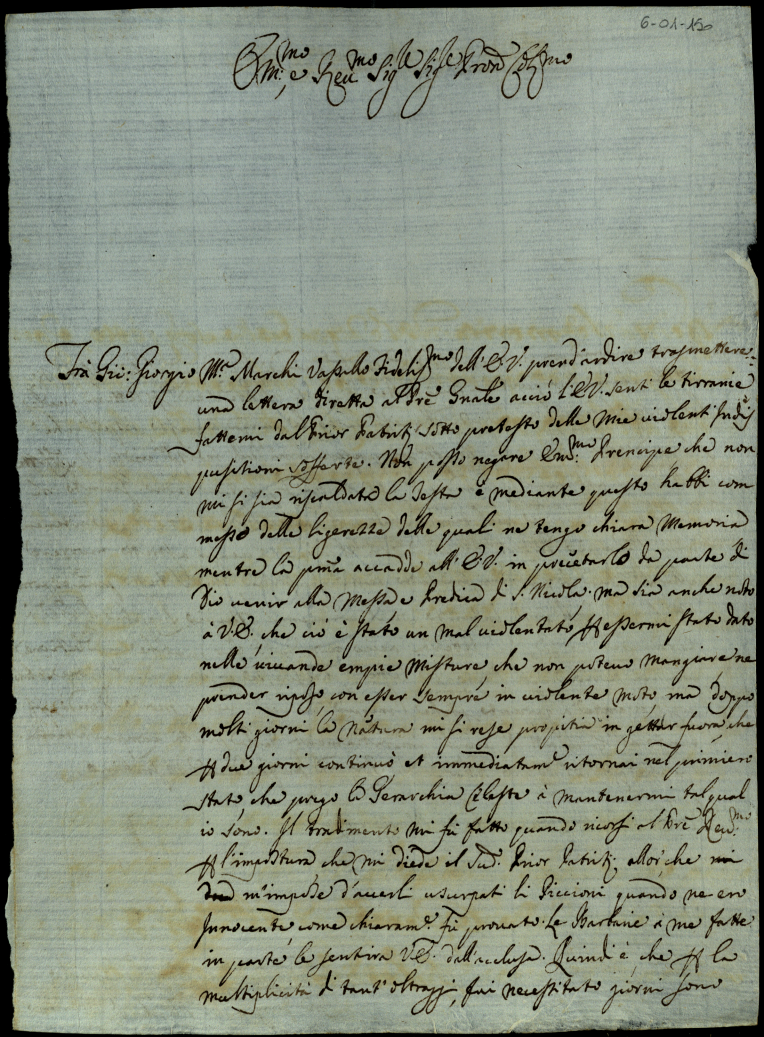 6-01-15
Em.mo e Reu.mo Sig.e Sig.e Pron Col.mo
Frà Gio: Giorgio M.a Marchi Vassallo Fidelis.mo dell'E.V. prend'ardire trasmettere
una lettera diretta al Pre Gnale acciò l'E.V. senti le tirranie
fattemi dal Prior Patritj sotto pretesto delle Mie violenti Indis
positioni sofferte. Non posso negare Em.mo Prencipe che non
mi si sia riscaldata la Testa e mediante questo habbi com
messo delle ligerezze delle quali ne tengo chiara Memoria
mentre la pma accadde all'E.V. in precetarlo da parte di
Dio venir alla Messa e Predica di S. Nicola. ma sia anche noto
à V.E. che ciò è stato un mal violentato p essermi stato dato
nelle vivande empie Misture che non potevo mangiare ne
prender riposo con esser sempre in violente moto ma doppo
molti giorni la natura mi si rese propitia in gettar fuora, che
p due giorni continuò et immediatam.e ritornai nel primiero
stato, che prego la Gerarchia Celeste à mantenermi tal qual
io sono. Il tradimento mi fù fatto quando ricorsi al Pre Reu.mo
p l'impostura che mi diede il Sud. Prior Patritj. allor che mi
m'impose d'averli usurpati li Piccioni quando ne ero
Innocente come chiaram.e fu provato. Le Barbarie à me fatte
in parte le sentira V.E. dall'acclusa. Quindi è che p la
multiplicità di tant'oltraggi, fui necessitato giorni sono